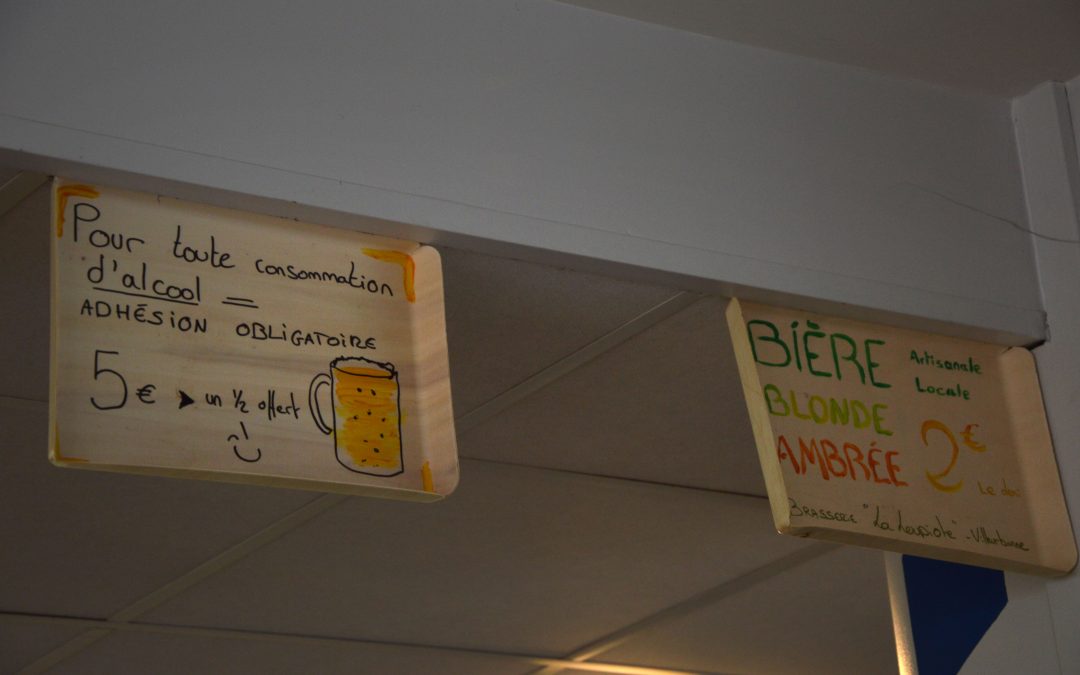 Pour toute consommation
d'alcool =
ADHÉSION OBLIGATOIRE
5 € ➤ un ½ offert
BIÈRE Artisanale
Locale
BLONDE
AMBRÉE 2 €
Le
BRASSERIE "La Loupiote" - Villeurbanne